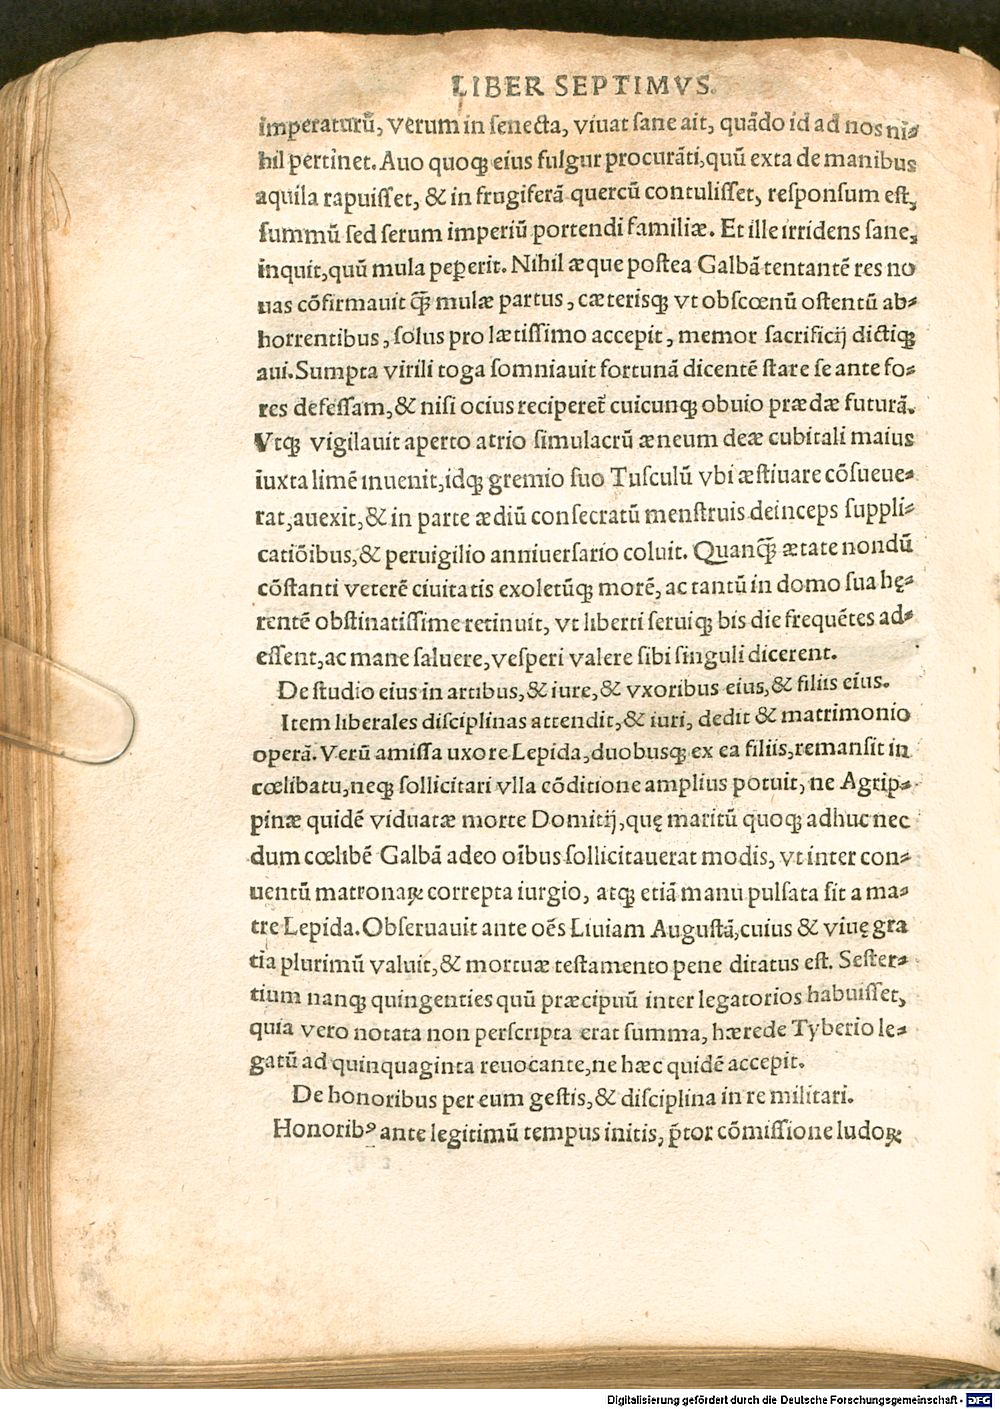 LIBER SEPTIMVS.
imperaturū, verum in ſenecta, viuat ſane ait, quādo id ad nos ni⸗
hil pertinet. Auo quoqꝫ eius fulgur procurāti, quū exta de manibus
aquila rapuiſſet, & in frugiferā quercū contuliſſet, reſponſum eſt,
ſummū ſed ſerum imperiū portendi familiæ. Et ille irridens ſane,
inquit, quū mula peperit. Nihil æque poſtea Galbā tentantē res no
uas cōfirmauit ꝙ̄ mulæ partus, cæterisqꝫ vt obſcœnū oſtentū ab⸗
horrentibus, ſolus pro lætiſſimo accepit, memor ſacrificij dictiqꝫ
aui. Sumpta virili toga ſomniauit fortunā dicentē ſtare ſe ante fo⸗
res defeſſam, & niſi ocius reciperet̄ cuicunqꝫ obuio prædæ futurā.
Vtqꝫ vigilauit aperto atrio ſimulacrū æneum deæ cubitali maius
iuxta limē inuenit, idqꝫ gremio ſuo Tuſculū vbi æſtiuare cōſueue⸗
rat, auexit, & in parte ædiū conſecratū menſtruis deinceps ſuppli⸗
catiōibus, & peruigilio anniuerſario coluit. Quanꝙ̄ ætate nondū
cōſtanti veterē ciuitatis exoletūqꝫ morē, ac tantū in domo ſua hę⸗
rentē obſtinatiſſime retinuit, vt liberti ſeruiqꝫ bis die frequētes ad⸗
eſſent, ac mane ſaluere, veſperi valere ſibi ſinguli dicerent.
De ſtudio eius in artibus, & iure, & vxoribus eius, & filiis eius.
Item liberales diſciplinas attendit, & iuri, dedit & matrimonio
operā. Verū amiſſa uxore Lepida, duobusqꝫ ex ea filiis, remanſit in
cœlibatu, neqꝫ ſollicitari vlla cōditione amplius potuit, ne Agrip⸗
pinæ quidē viduatæ morte Domitij, quę maritū quoqꝫ adhuc nec
dum cœlibē Galbā adeo oībus ſollicitauerat modis, vt inter con⸗
uentū matronaꝝ correpta iurgio, atqꝫ etiā manu pulſata ſit a ma⸗
tre Lepida. Obſeruauit ante oēs Liuiam Auguſtā, cuius & viuę gra
tia plurimū valuit, & mortuæ teſtamento pene ditatus eſt. Seſter⸗
tium nanqꝫ quingenties quū præcipuū inter legatorios habuiſſet,
quia vero notata non perſcripta erat ſumma, hærede Tyberio le⸗
gatū ad quinquaginta reuocante, ne hæc quidē accepit.
De honoribus per eum geſtis, & diſciplina in re militari.
Honoribꝰ ante legitimū tempus initis, p̄tor cōmiſſione ludoꝝ
Digitalisierung gefördert durch die Deutsche Forschungsgemeinschaft - DFG